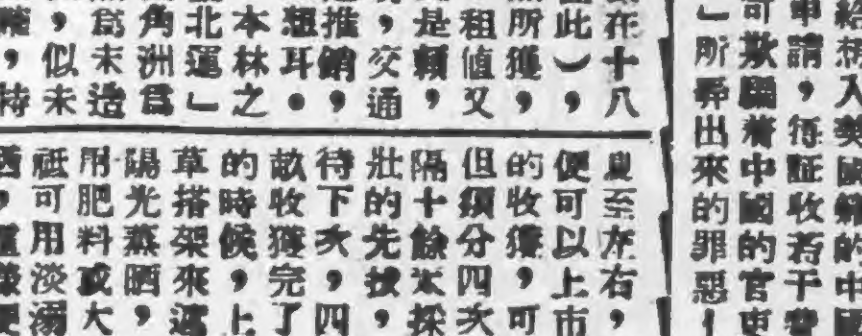 給想入英國籍的中國
申請，每証收若干費
可欺騙着中國的官吏
」所弄出來的罪惡！
在十八
此），
所獲，
租值又
是賴，
，交通
推銷，
想耳。
本林之
北運」
角洲為
為未造
，似未
夏至左右，
便可以上市
的收獲，可
但須分四次
隔十餘天採
壯的先拔，
待下次，四
故收獲完了
的時候，上
草搭架來遮
陽光蒸晒，
用肥料或大
祗可用淡溺